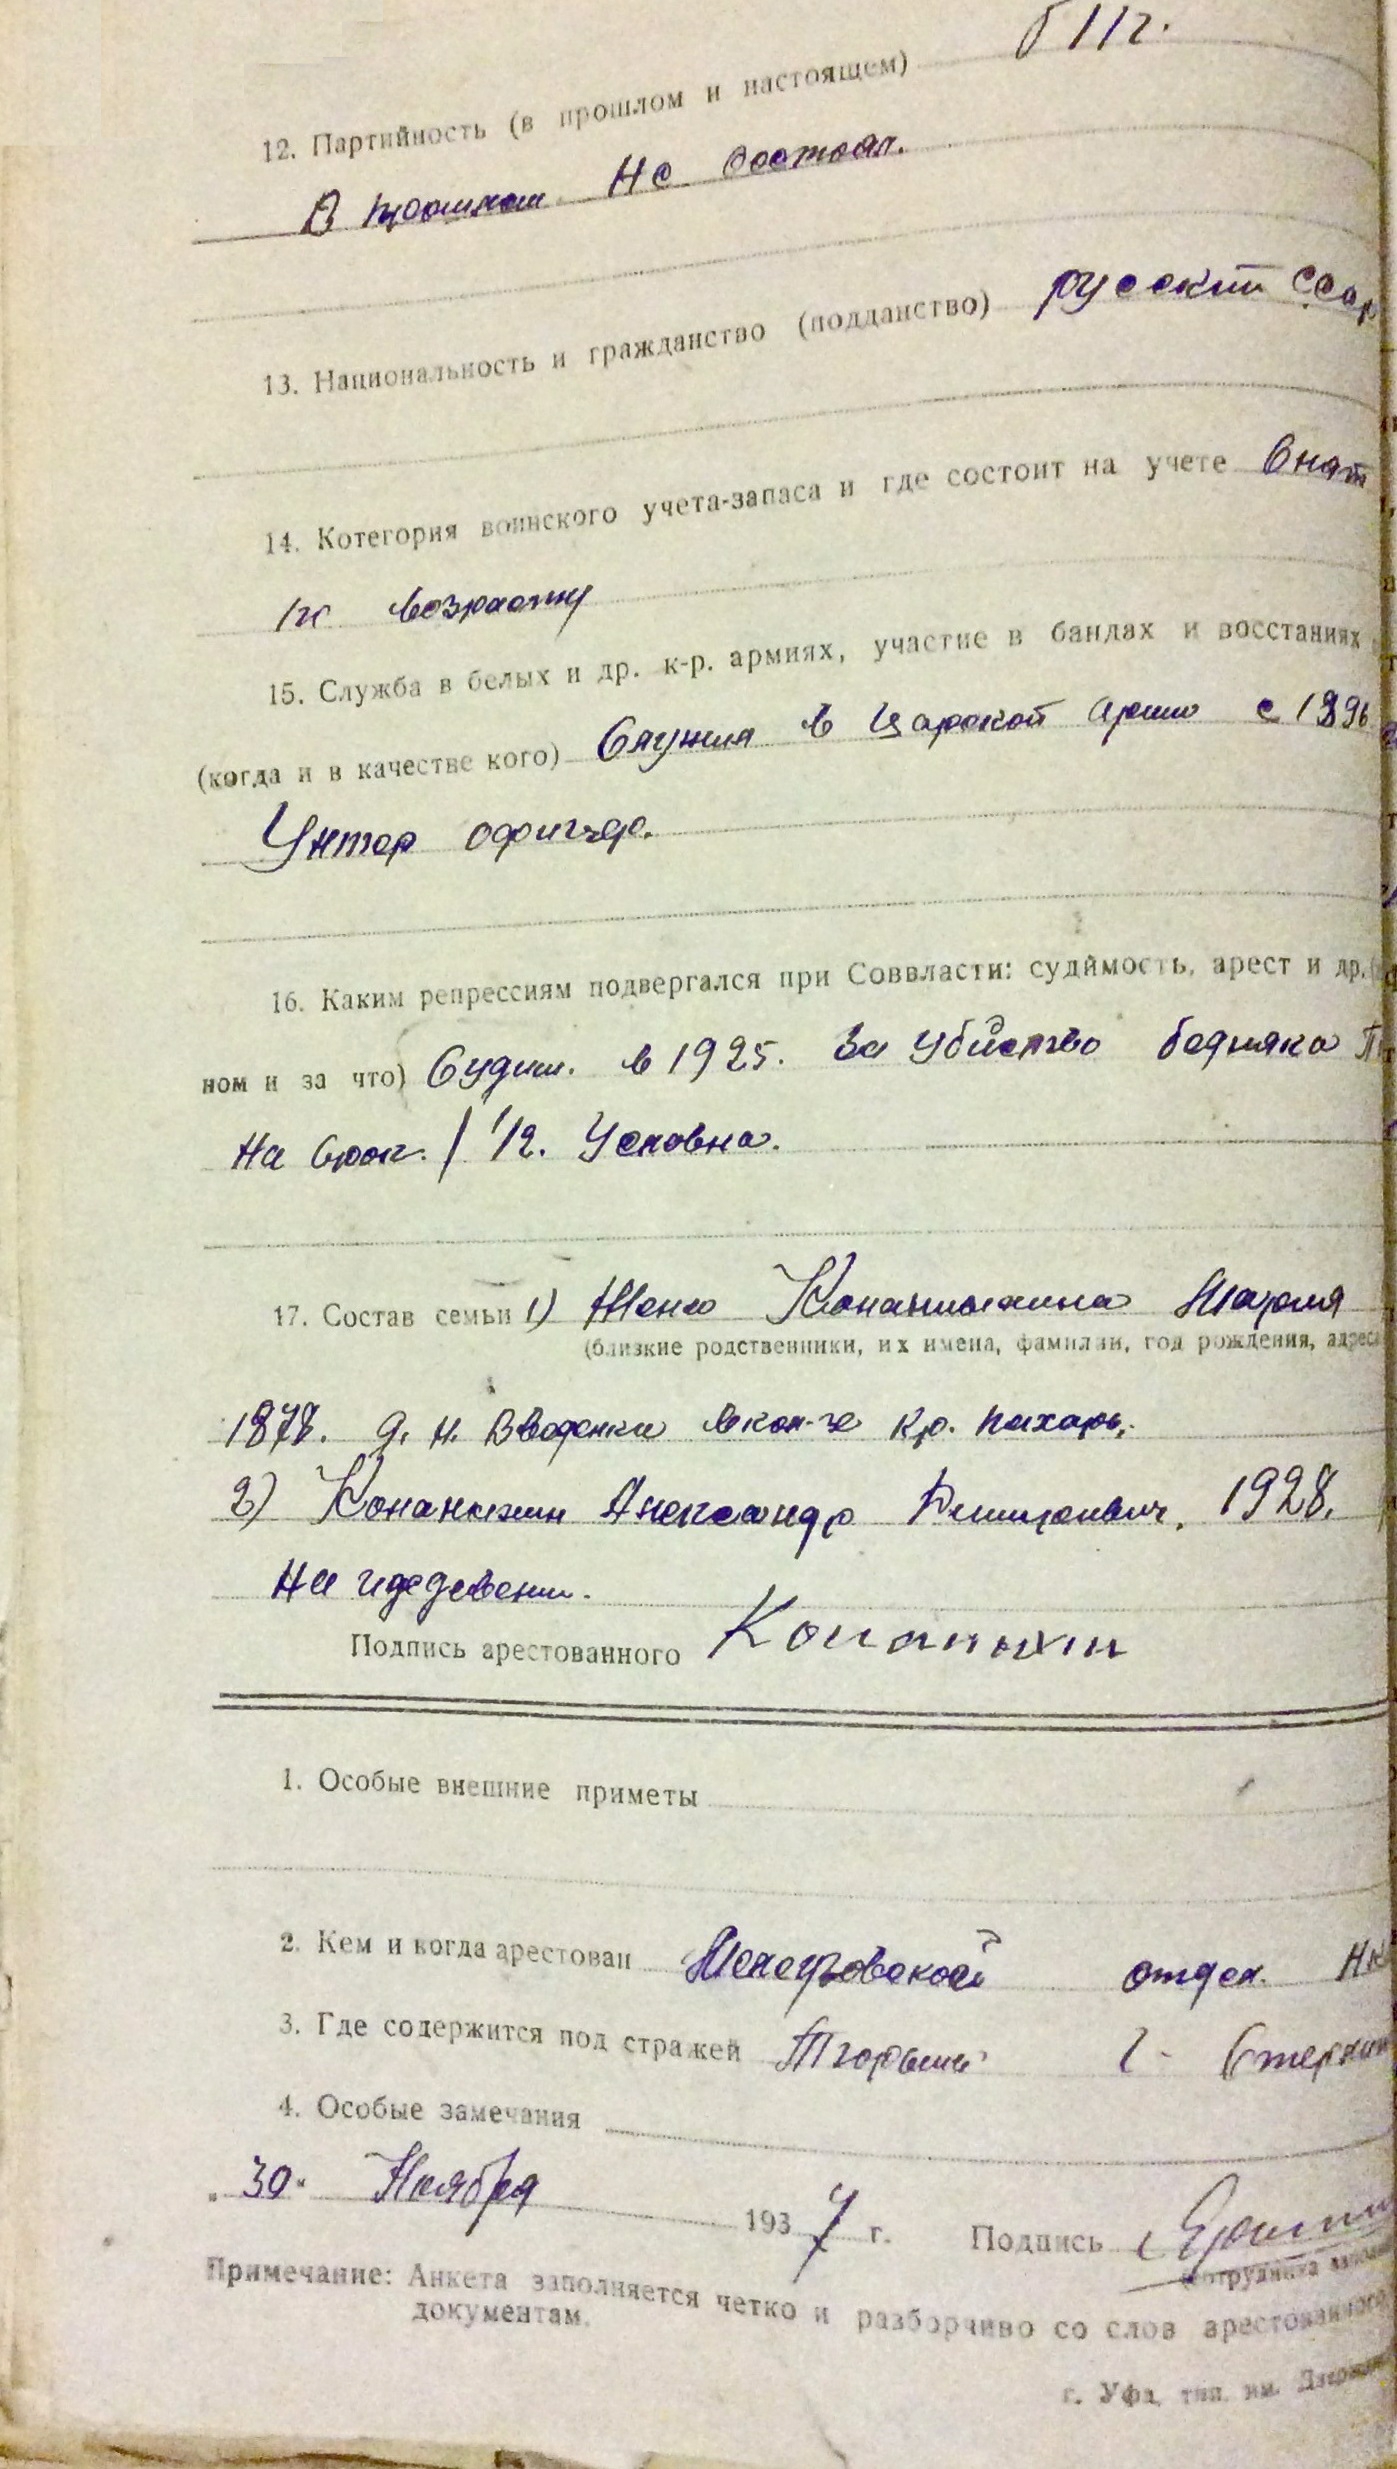 12. Партийность (в прошлом и настоящем) б/п.
В прошлом не состоял.
13. Национальность и гражданство (подданство) русский ССр
14. Котегория воинского учета-запаса и где состоит на учете Снят
по возрасту
15. Служба в белых и др. к-р. армиях, участие в бандах и восстаниях
(когда и в качестве кого) Служил в царской армии с 1896
Унтер офицер.
16. Каким репрессиям подвергался при Соввласти: судимость, арест и др.
ном и за что) Судим. в 1925. За убиство бедняка
на срок. 1 1/2. Условна.
17. Состав семьи 1) Жена Конаныхина Мария
(близкие родственники, их имена, фамилии, год рождения, адреса
1878. д. Н. Введенка
2) Конаныхин Александр 1928.
на иждевени.
Подпись арестованного Конаныхин
1. Особые внешние приметы
2. Кем и когда арестован отдел. НК
3. Где содержится под стражей Тюрьми г. Стерли
4. Особые замечания
„30" Ноября 1937 г. Подпись
сотрудника
Примечание: Анкета заполняется четко и разборчиво со слов арестованного
документам.
г. Уфа, тип. им. Дзержин